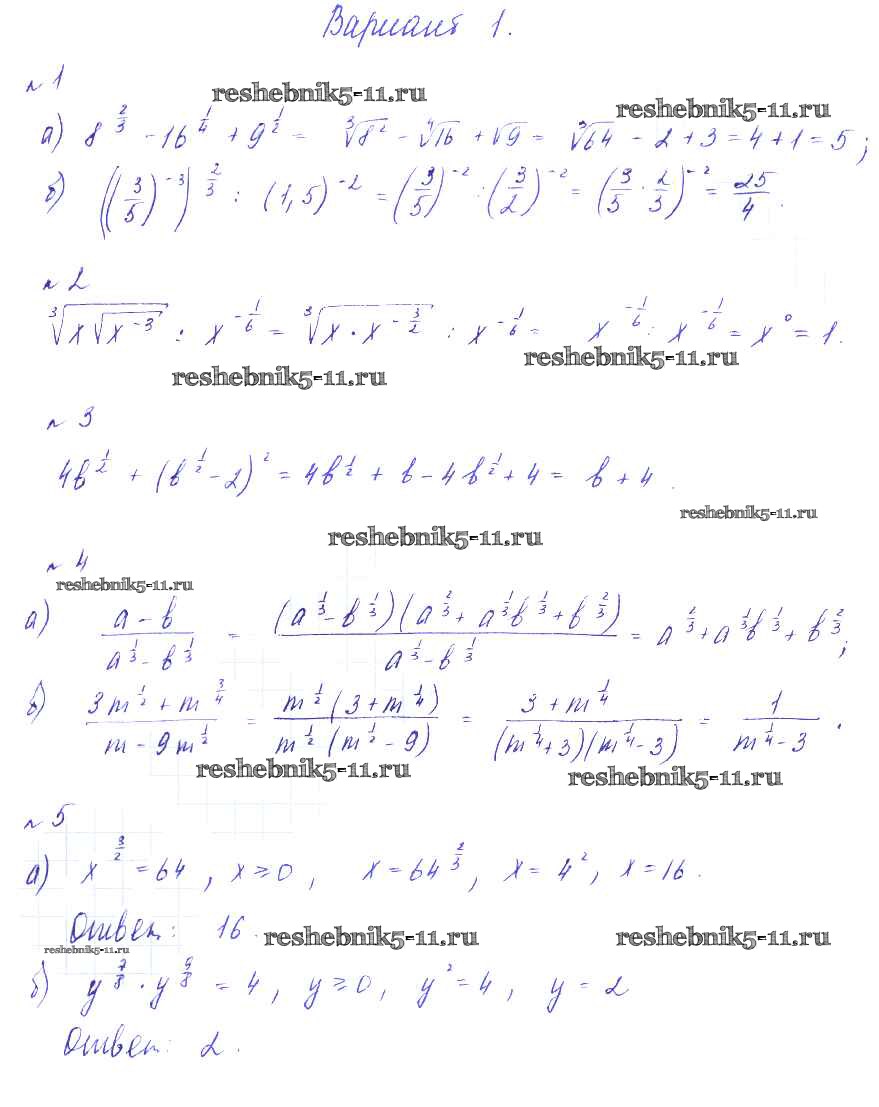 Вариант 1.
№1
reshebnik5-11.ru
reshebnik5-11.ru
а) 8^(2/3) - 16^(1/4) + 9^(1/2) = ∛(8²) - ∜16 + √9 = ∛64 - 2 + 3 = 4 + 1 = 5;
б) ((3/5)^(-3))^(2/3) : (1,5)^(-2) = (3/5)^(-2) : (3/2)^(-2) = (3/5 · 2/3)^(-2) = 25/4.
№2
∛(x√(x^(-3))) : x^(-1/6) = ∛(x · x^(-3/2)) : x^(-1/6) = x^(-1/6) : x^(-1/6) = x^0 = 1.
reshebnik5-11.ru
reshebnik5-11.ru
№3
4b^(1/2) + (b^(1/2) - 2)² = 4b^(1/2) + b - 4b^(1/2) + 4 = b + 4.
reshebnik5-11.ru
reshebnik5-11.ru
№4
reshebnik5-11.ru
а) (a - b)/(a^(1/3) - b^(1/3)) = ((a^(1/3) - b^(1/3))(a^(2/3) + a^(1/3)b^(1/3) + b^(2/3)))/(a^(1/3) - b^(1/3)) = a^(2/3) + a^(1/3)b^(1/3) + b^(2/3);
б) (3m^(1/2) + m^(3/4))/(m - 9m^(1/2)) = (m^(1/2)(3 + m^(1/4)))/(m^(1/2)(m^(1/2) - 9)) = (3 + m^(1/4))/((m^(1/4) + 3)(m^(1/4) - 3)) = 1/(m^(1/4) - 3).
reshebnik5-11.ru
reshebnik5-11.ru
№5
а) x^(3/2) = 64, x ≥ 0, x = 64^(2/3), x = 4², x = 16.
Ответ: 16.
reshebnik5-11.ru
reshebnik5-11.ru
reshebnik5-11.ru
б) y^(7/8) · y^(9/8) = 4, y ≥ 0, y² = 4, y = 2
Ответ: 2.